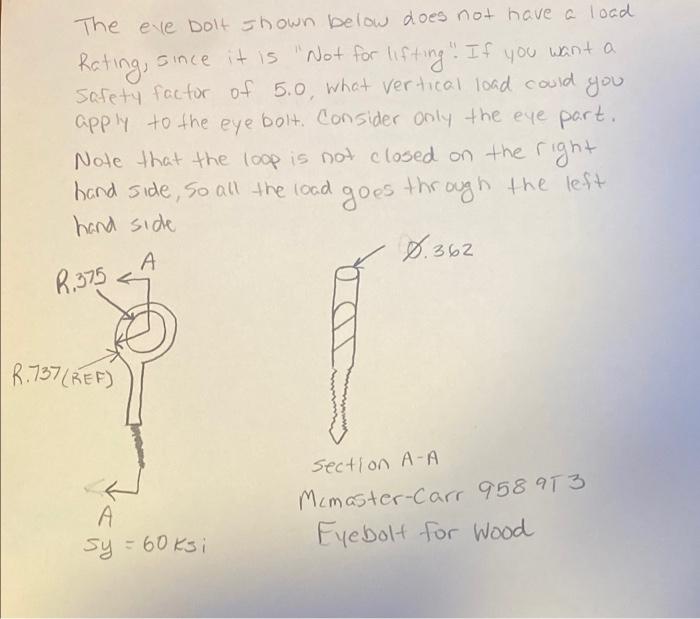 The eye bolt shown below does not have a load
Rating, since it is "Not for lifting". If you want a
Safety factor of 5.0, what vertical load could you
apply to the eye bolt. Consider only the eye part.
Note that the loop is not closed on the right
hand side, so all the load goes through the left
hand side
A
Ø.362
R.375
R.737(REF)
A
Sy = 60 ksi
Section A-A
Mcmaster-Carr 9589T3
Eyebolt for Wood